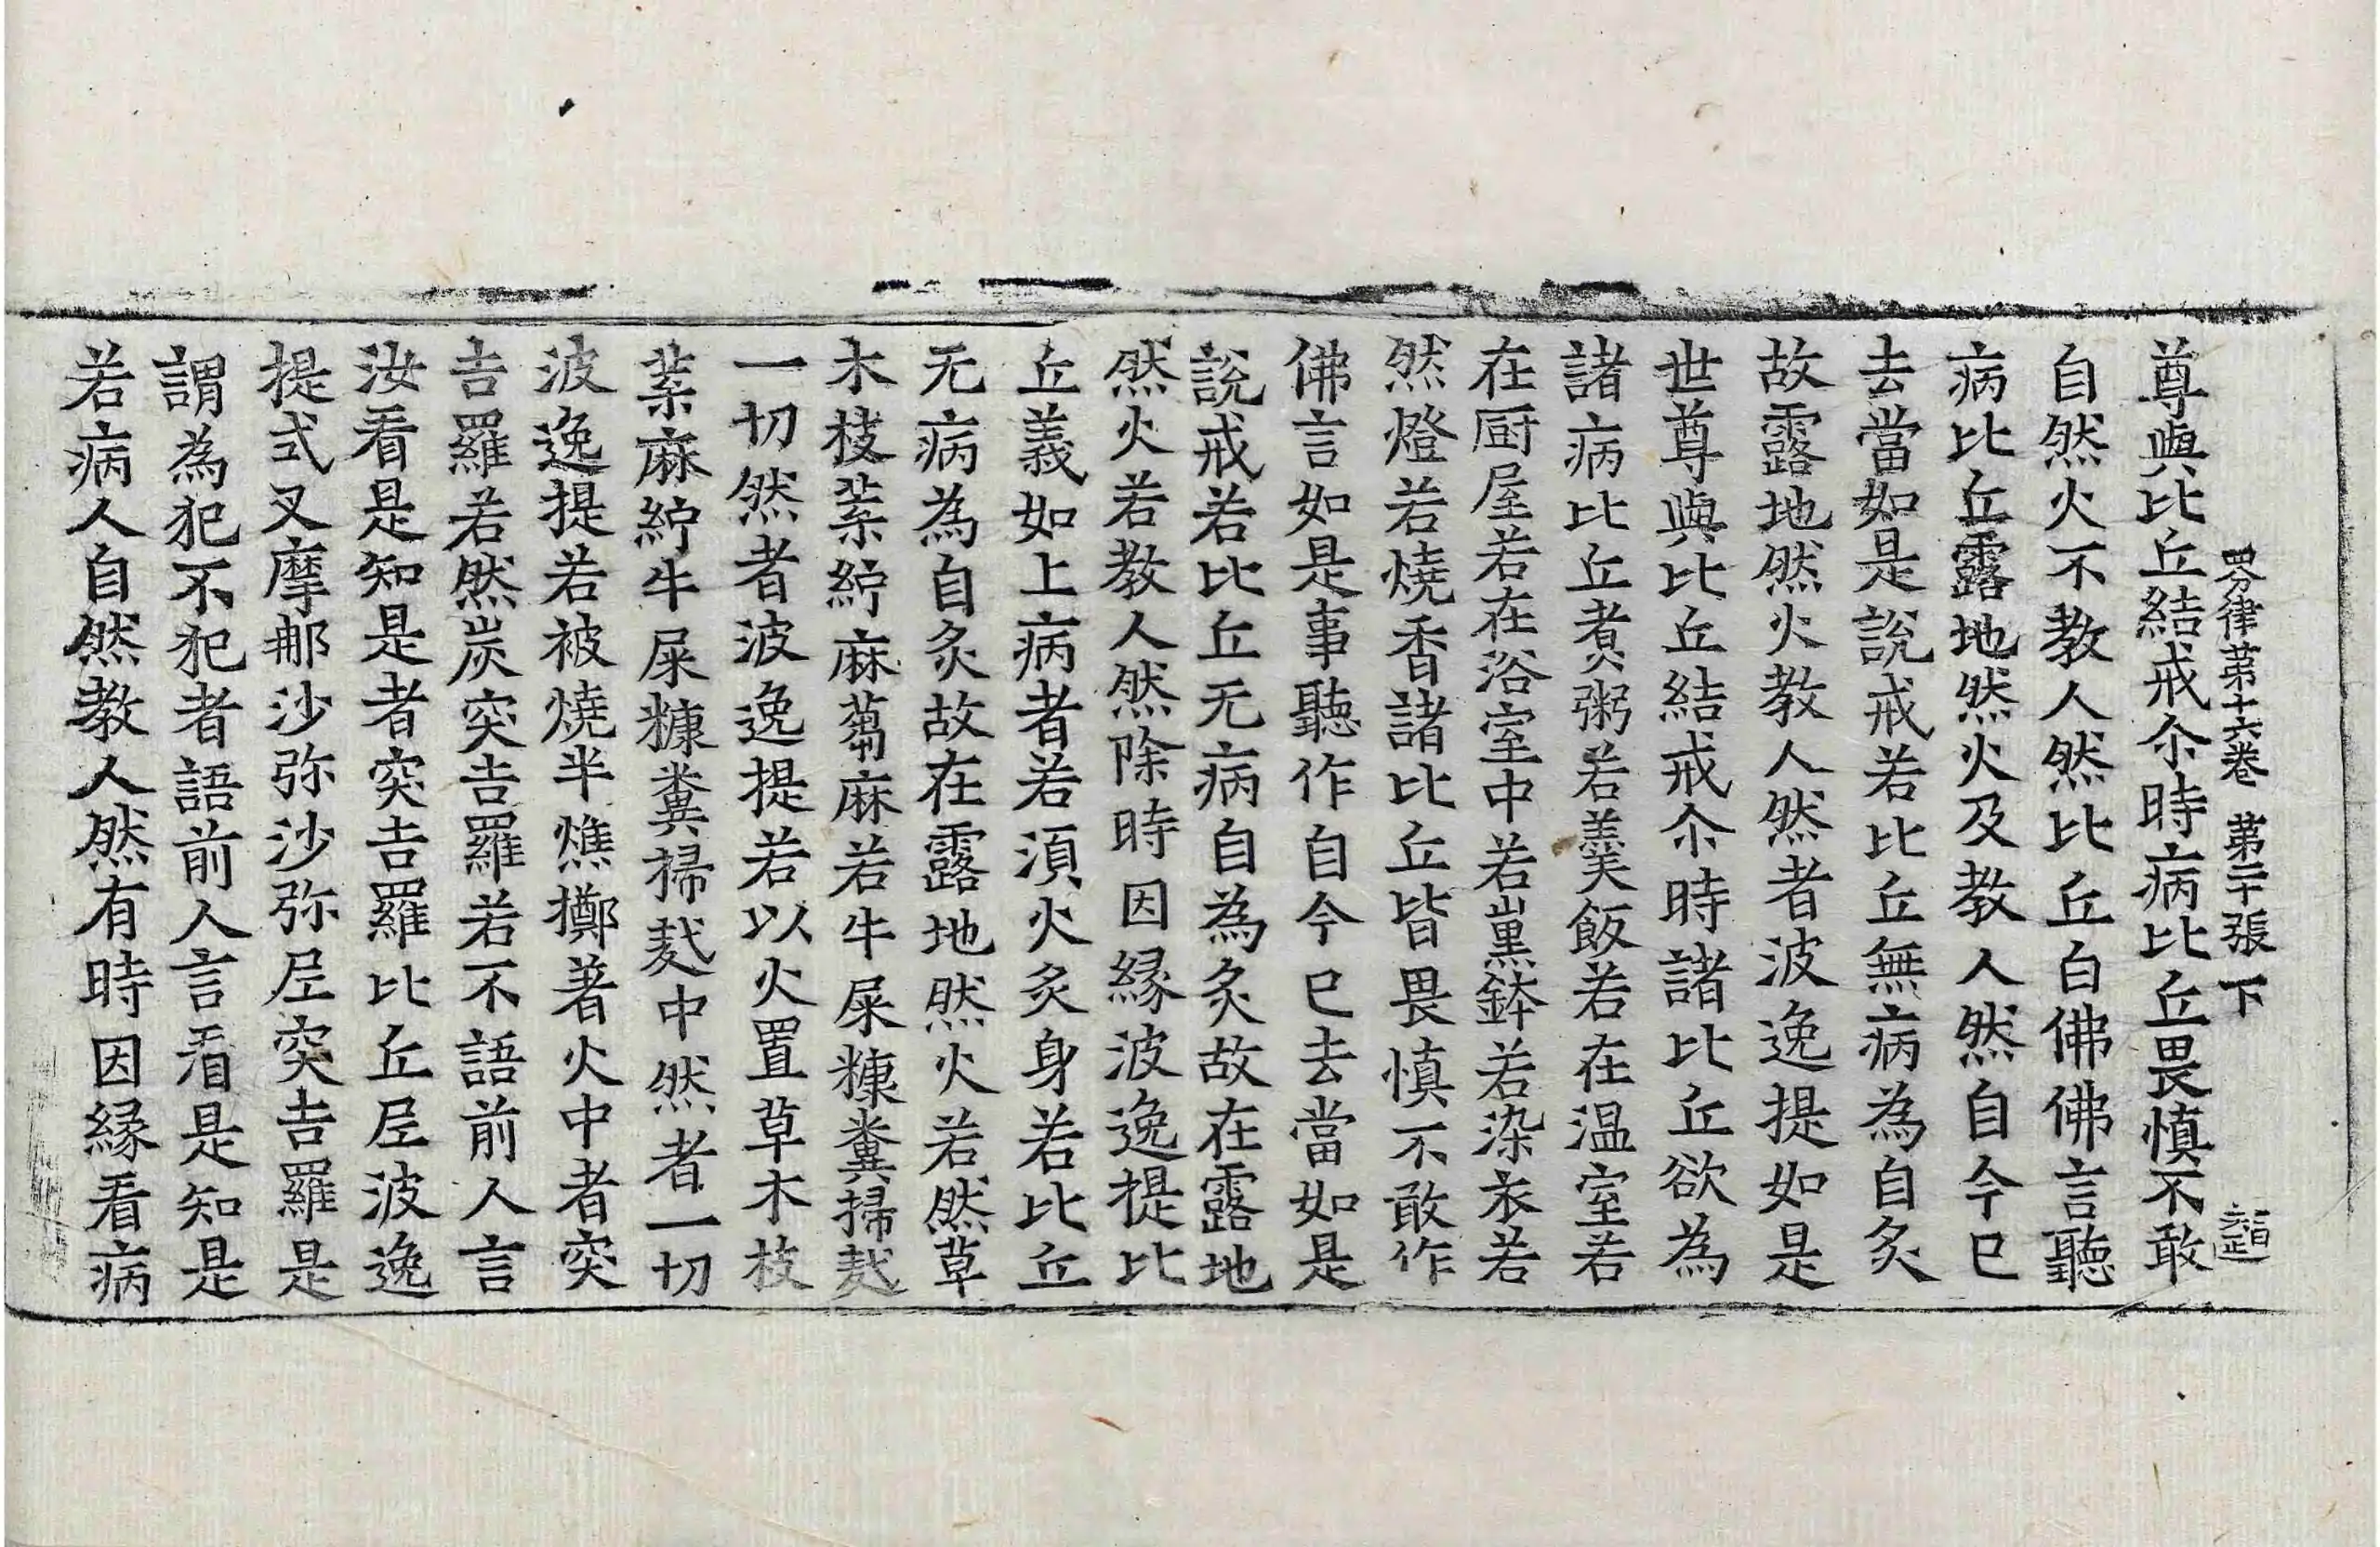 四分律第十六卷 第二十張 下
尊與比丘結戒尒時病比丘畏慎不敢
自然火不教人然比丘白佛佛言聽
病比丘露地然火及教人然自今已
去當如是說戒若比丘無病為自炙
故露地然火教人然者波逸提如是
世尊與比丘結戒尒時諸比丘欲為
諸病比丘煑粥若羹飯若在温室若
在厨屋若在浴室中若熏鉢若染衣若
然燈若燒香諸比丘皆畏慎不敢作
佛言如是事聽作自今已去當如是
說戒若比丘无病自為炙故在露地
然火若教人然除時因縁波逸提比
丘義如上病者若湏火炙身若比丘
无病為自炙故在露地然火若然草
木枝葉紵麻蒭麻若牛屎糠糞掃麩
一切然者波逸提若以火置草木枝
葉麻紵牛屎糠糞掃麩中然者一切
波逸提若被燒半燋擲著火中者突
吉羅若然炭突吉羅若不語前人言
汝看是知是者突吉羅比丘尼波逸
提式叉摩那沙弥沙弥尼突吉羅是
謂為犯不犯者語前人言看是知是
若病人自然教人然有時因縁看病